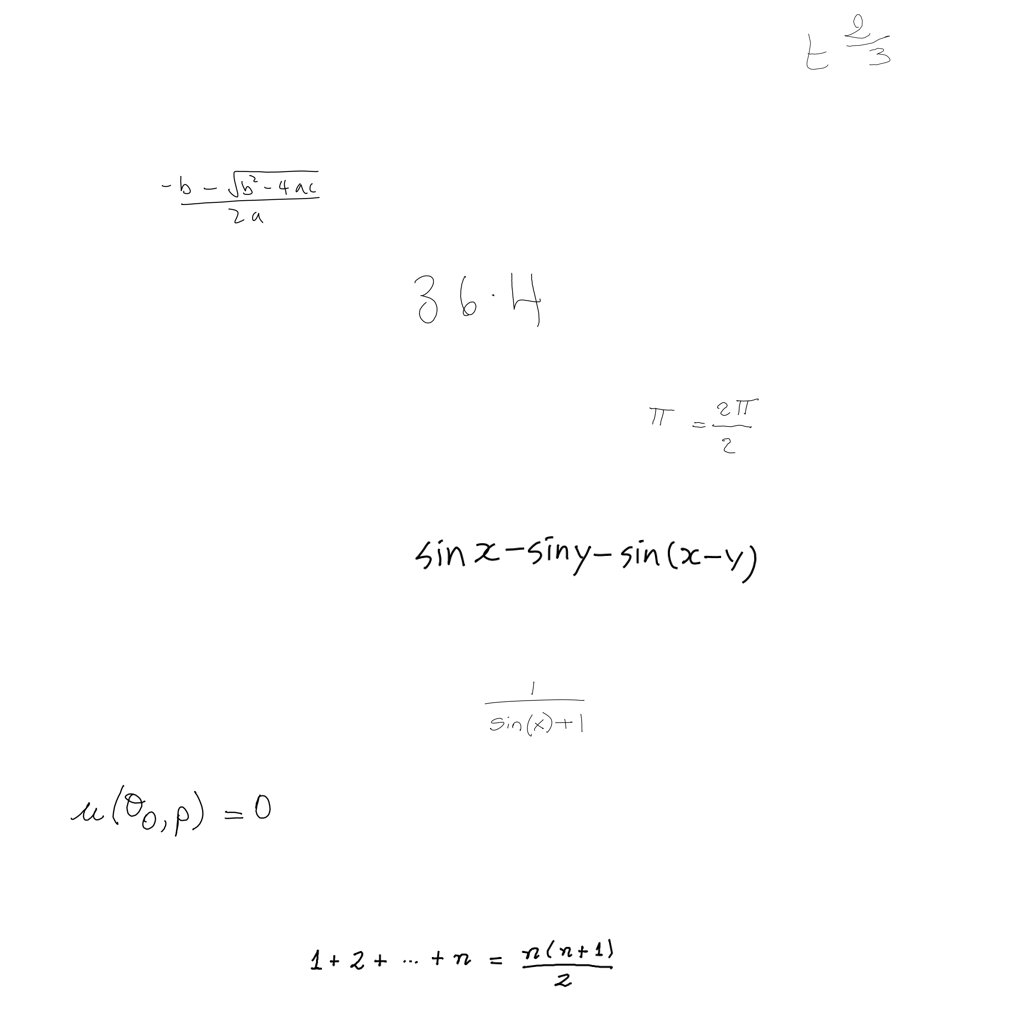 t^{2/3}
\frac{-b-\sqrt{b^2-4ac}}{2a}
36.4
π = \frac{2π}{2}
sin x - sin y - sin(x-y)
\frac{1}{sin(x)+1}
u(θ_0, p) = 0
1 + 2 + ... + n = \frac{n(n+1)}{2}